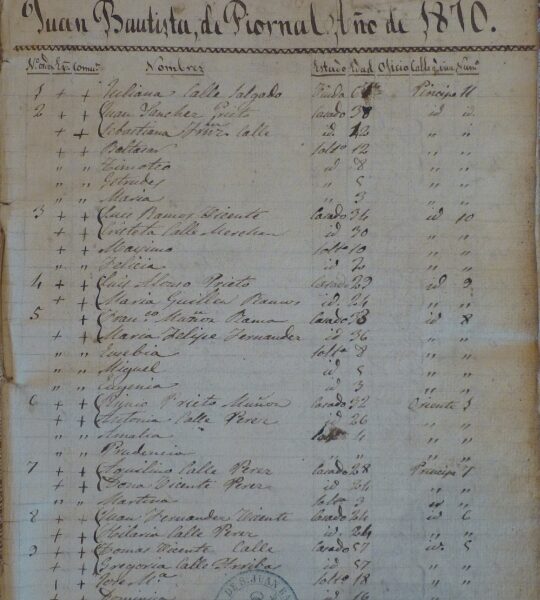 Juan Bautista, de Piornal Año de 1870.
Nombres Estado Edad Oficio Calle
1 + + Juliana Calle Salgado Viuda Principe 11
2 + + Juan Sanchez Prieto Casado 38 id id
+ + Sebastiana Calle id 42 " "
+ + Baltasar solto 12 " "
" " Timoteo id 8 " "
" " " 5 " "
" " Maria " 3 " "
3 + + Luis Ramos Vicente Casado 34 id 10
+ + Calle Merchan id 30 " "
+ + Maximo solto 10 " "
" " Felicia id 2 " "
4 + + Luis Alonso Prieto Casado 29 id 9
+ + Maria Guillen Ramos id 24 " "
5 + + Franco Muñoz Rama Casado 38 id 8
+ + Maria Felipe Fernandez id 36 " "
" " Eusebia solta 8 " "
" " Miguel id 5 " "
" " Eugenia id 3 " "
6 + + Prieto Muñoz Casado 32 Oriente 3
+ + Antonia Calle Perez id 26 " "
" " Amalia 4 " "
" " Prudencia " " "
7 + + Aquilino Calle Perez Casado 28 Principe 7
+ + Vicente Perez id 24 " "
" " Martina solta 2 " "
8 + + Juan Fernandez Vicente Casado 26 id 6
+ + Hilaria Calle Perez id 24 " "
9 + + Tomas Vicente Calle Casado 57 id 5
+ + Gregoria Calle Arriba id 57 " "
+ + Jose Ma solto 18 " "
Dominica id 16 " "